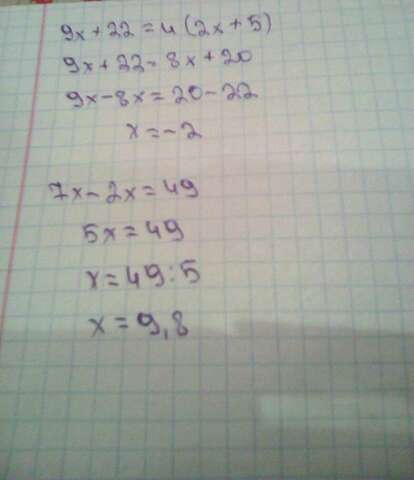 9x+22=4(2x+5)
9x+22=8x+20
9x-8x=20-22
x=-2
7x-2x=49
5x=49
x=49:5
x=9,8